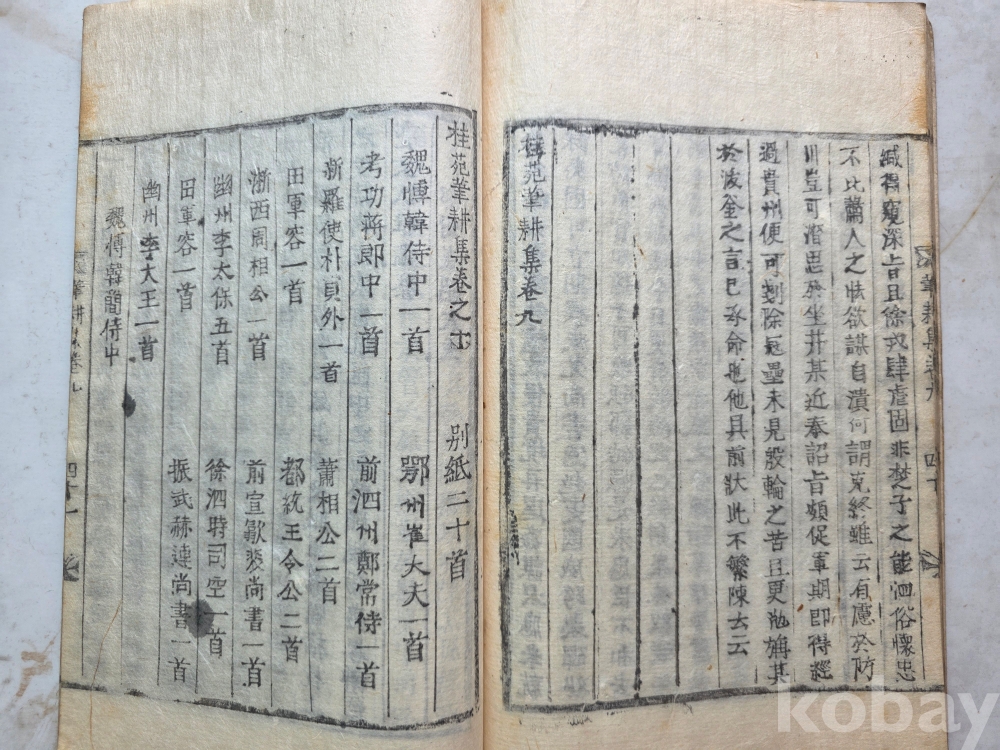 緘得竄深旨且徐戎肆虐固非楚子之能泗俗懷忠
不比蕭人之怯欲謀自潰何謂克終雖云有應於防
川豈可潛思於坐井某近奉詔旨頻促軍期即得經
過貴州便可剗除冠壘未見般輪之苦且更
於波
之言已承命也他具前狀此不繁陳云云
桂苑筆耕集卷九
筆耕集卷九
四十
桂苑筆耕集卷之十 別紙二十首
魏愽韓侍中一首 鄂州崔大夫一首
考功蔣郎中一首 前泗州鄭常侍一首
新羅使朴貟外一首 蕭相公二首
田軍容一首 都統王令公二首
浙西周相公一首 前宣歙裴尚書一首
幽州李太保五首 徐泗時司空一首
田軍容一首 振武赫連尚書一首
幽州李大王一首
魏愽韓簡侍中
筆耕集卷九
四十一
kobay